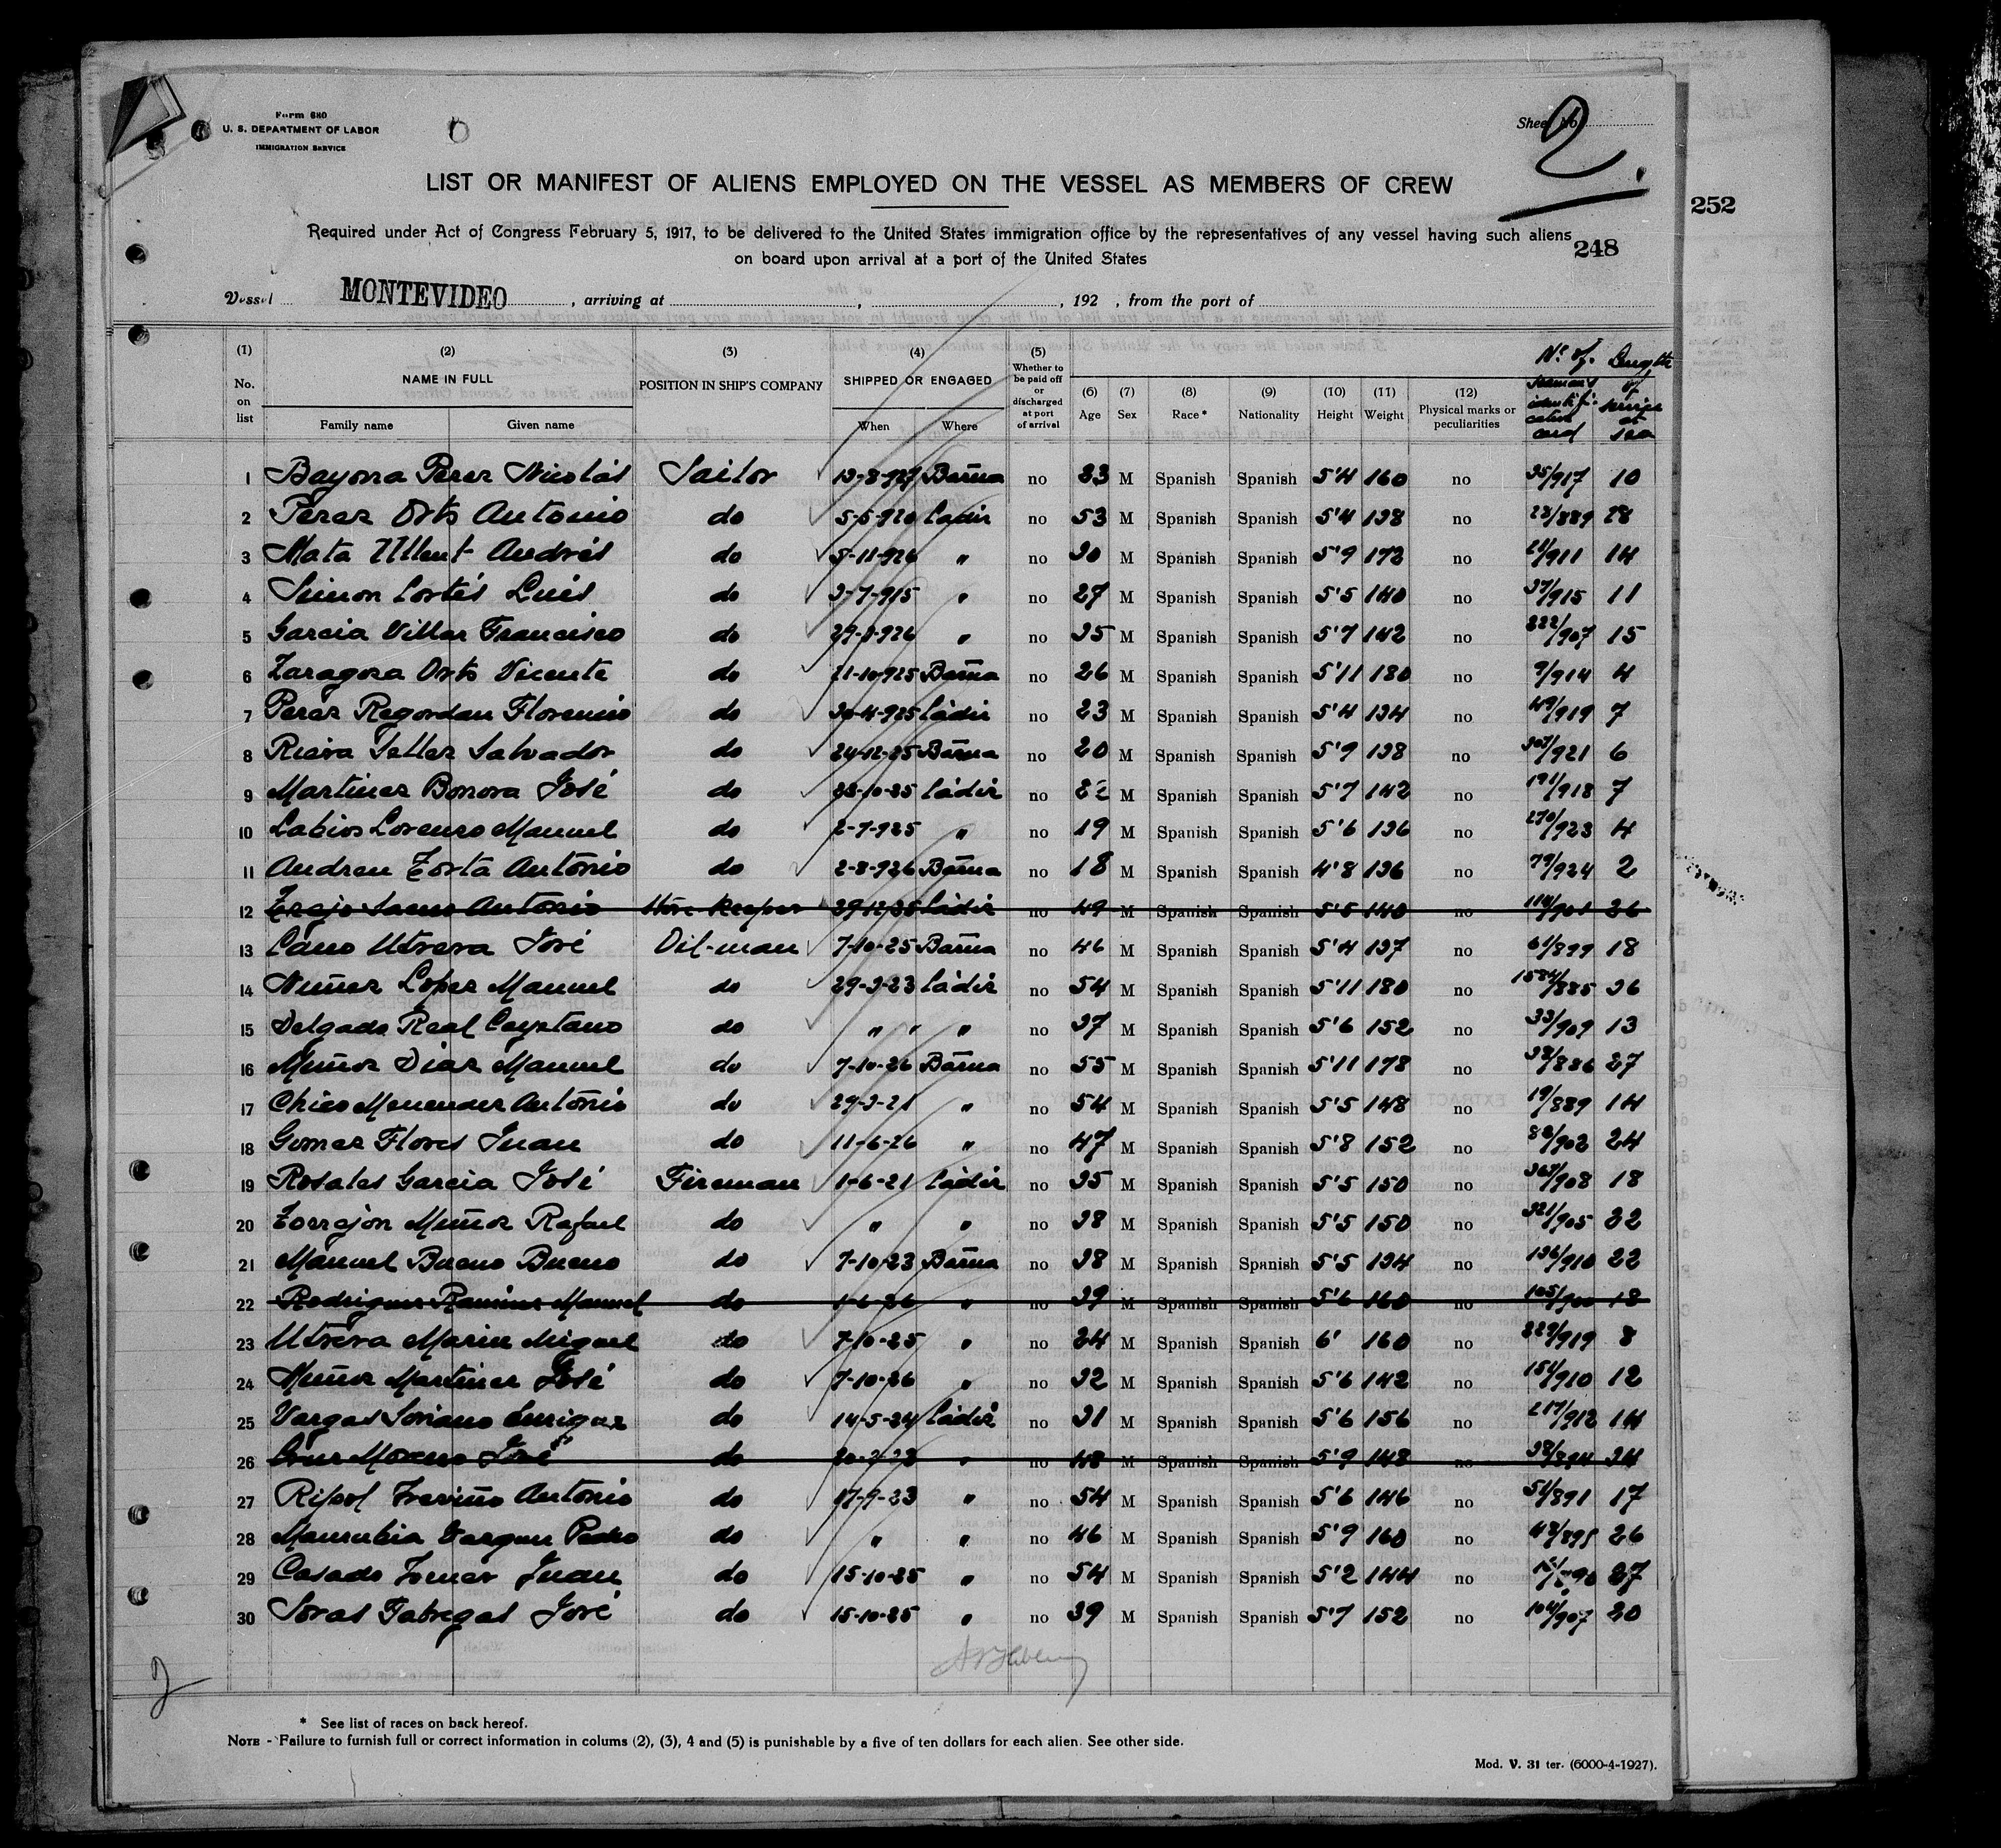 Form 680
U. S. DEPARTMENT OF LABOR
IMMIGRATION SERVICE
Sheet No. 2.
LIST OR MANIFEST OF ALIENS EMPLOYED ON THE VESSEL AS MEMBERS OF CREW
252
Required under Act of Congress February 5, 1917, to be delivered to the United States immigration office by the representatives of any vessel having such aliens
248
on board upon arrival at a port of the United States
Vessel MONTEVIDEO, arriving at , , 192 , from the port of
(1) No. on list (2) NAME IN FULL Family name Given name (3) POSITION IN SHIP'S COMPANY (4) SHIPPED OR ENGAGED When Where (5) Whether to be paid off or discharged at port of arrival (6) Age (7) Sex (8) Race * (9) Nationality (10) Height (11) Weight (12) Physical marks or peculiarities Nº of seaman's identification card Length of service at sea
1 Bayona Perez Nicolás Sailor 13-8-927 Barña no 33 M Spanish Spanish 5'4 160 no 35/917 10
2 Perez Orts Antonio do 5-5-920 Cadiz no 53 M Spanish Spanish 5'4 138 no 23/889 28
3 Mata Andrés do 5-11-926 " no 30 M Spanish Spanish 5'9 172 no 21/911 14
4 Simon Cortés Luis do 3-7-915 " no 27 M Spanish Spanish 5'5 140 no 37/915 11
5 Garcia Villar Francisco do " no 35 M Spanish Spanish 5'7 142 no 222/907 15
6 Zaragoza Orts Vicente do 21-10-925 Barña no 26 M Spanish Spanish 5'11 180 no 9/914 4
7 Perez Regordan Florencio do 30-4-925 Cádiz no 23 M Spanish Spanish 5'4 134 no 49/919 7
8 Riera Seller Salvador do 24-12-25 Barña no 20 M Spanish Spanish 5'9 138 no 307/921 6
9 Martinez Bonora José do 23-10-25 Cádiz no M Spanish Spanish 5'7 142 no 191/918 7
10 Labios Lorenzo Manuel do 2-7-925 " no 19 M Spanish Spanish 5'6 136 no 270/923 4
11 Andreu Zorta Antonio do 2-8-926 Barña no 18 M Spanish Spanish 4'8 136 no 79/924 2
12 Antonio Store keeper 29-12-25 Cádiz no 49 M Spanish Spanish 5'5 140 no 114/901 26
13 Cano Utrera José Oil-man 7-10-25 Barña no 46 M Spanish Spanish 5'4 137 no 61/899 18
14 Nuñez Lopez Manuel do 29-3-23 Cádiz no 54 M Spanish Spanish 5'11 180 no 1584/885 36
15 Delgado Real Cayetano do " " " no 37 M Spanish Spanish 5'6 152 no 33/909 13
16 Muñoz Diaz Manuel do 7-10-26 Barña no 55 M Spanish Spanish 5'11 178 no 38/886 27
17 Chico Menendez Antonio do 29-3-21 " no 54 M Spanish Spanish 5'5 148 no 19/889 14
18 Gomez Flores Juan do 11-6-26 " no 47 M Spanish Spanish 5'8 152 no 83/902 24
19 Rosales Garcia José Fireman 1-6-21 Cádiz no 35 M Spanish Spanish 5'5 150 no 367/908 18
20 Torrejon Muñoz Rafael do " " no 38 M Spanish Spanish 5'5 150 no 321/905 22
21 Manuel Bueno Bueno do 7-10-23 Barña no 38 M Spanish Spanish 5'5 134 no 136/910 22
22 Rodriguez Ramirez Manuel do 1-6-26 " no 39 M Spanish Spanish 5'6 160 no 105/900 18
23 Utrera Marin Miguel do 7-10-25 " no 24 M Spanish Spanish 6' 160 no 229/919 8
24 Muñoz Martinez José do 7-10-26 " no 32 M Spanish Spanish 5'6 142 no 151/910 12
25 Vargas Soriano Enrique do 14-5-24 Cádiz no 31 M Spanish Spanish 5'6 156 no 217/912 14
26 Moreno José do " no 48 M Spanish Spanish 5'9 148 no 38/894 34
27 Ripol Treviño Antonio do 17-7-23 " no 54 M Spanish Spanish 5'6 146 no 51/891 17
28 Manzubia Vazquez Pedro do " " no 46 M Spanish Spanish 5'9 160 no 43/895 26
29 Casado Juan do 15-10-25 " no 54 M Spanish Spanish 5'2 144 no 27
30 Soras Fabregas José do 15-10-25 " no 39 M Spanish Spanish 5'7 152 no 104/907 20
2
* See list of races on back hereof.
NOTE - Failure to furnish full or correct information in colums (2), (3), 4 and (5) is punishable by a five of ten dollars for each alien. See other side.
Mod. V. 31 ter. (6000-4-1927).